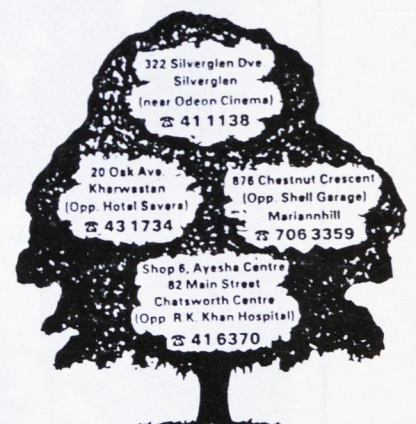 322 Silverglen Dve
Silverglen
(near Odeon Cinema)
☎ 41 1138
20 Oak Ave.
Kharwastan
(Opp. Hotel Savera)
☎ 43 1734
876 Chestnut Crescent
(Opp. Shell Garage)
Mariannhill
☎ 706 3359
Shop 6, Ayesha Centre
82 Main Street
Chatsworth Centre
(Opp R.K. Khan Hospital)
☎ 41 6370